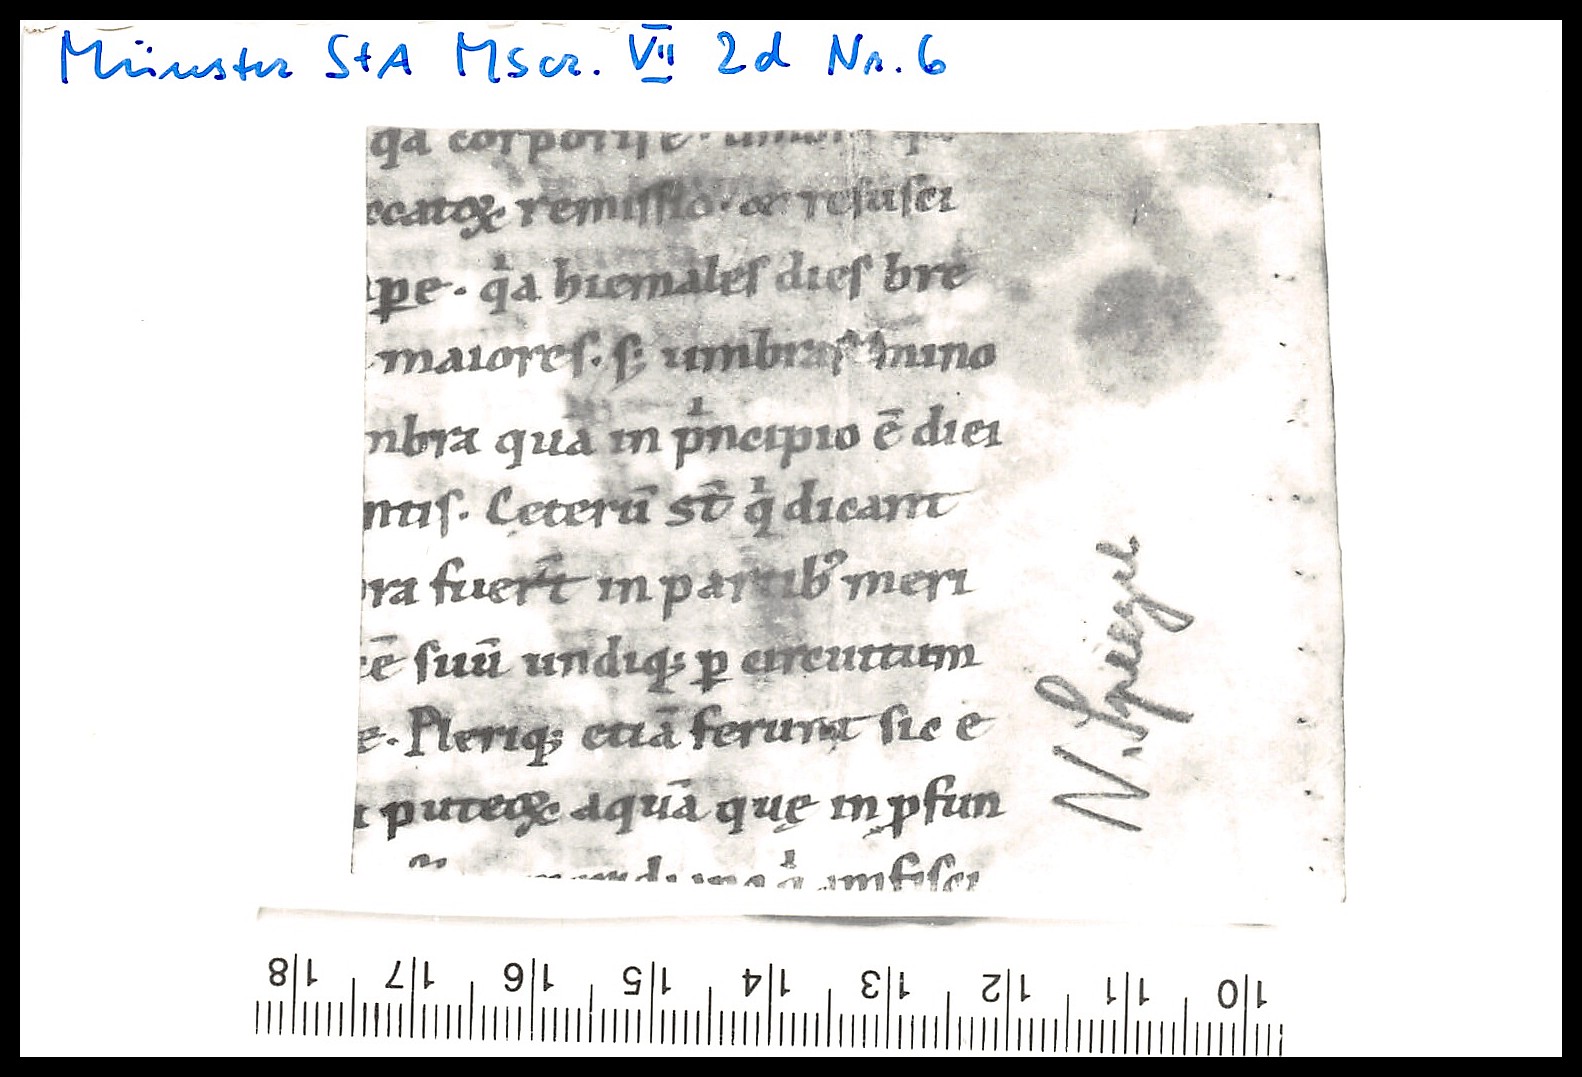 Münster StA Mscr. VII 2d Nr. 6
qa corporis e·
eccatoꝝ remissio· et resusci
ꝑe· qͥa hiemales dies bre
maiores· sꝫ umbras mino
nbra quā in pͥncipio ē diei
ntis· Ceterū st̄ qͥ dicant
ra fuer̄t in partibꝰ meri
cē suū undiqꝫ ꝑ circuitum
e· Pleriqꝫ etiā ferunt sic e
puteoꝝ aquā quę in ꝓfun
qͥ
N. Spiegel
18 17 16 15 14 13 12 11 10